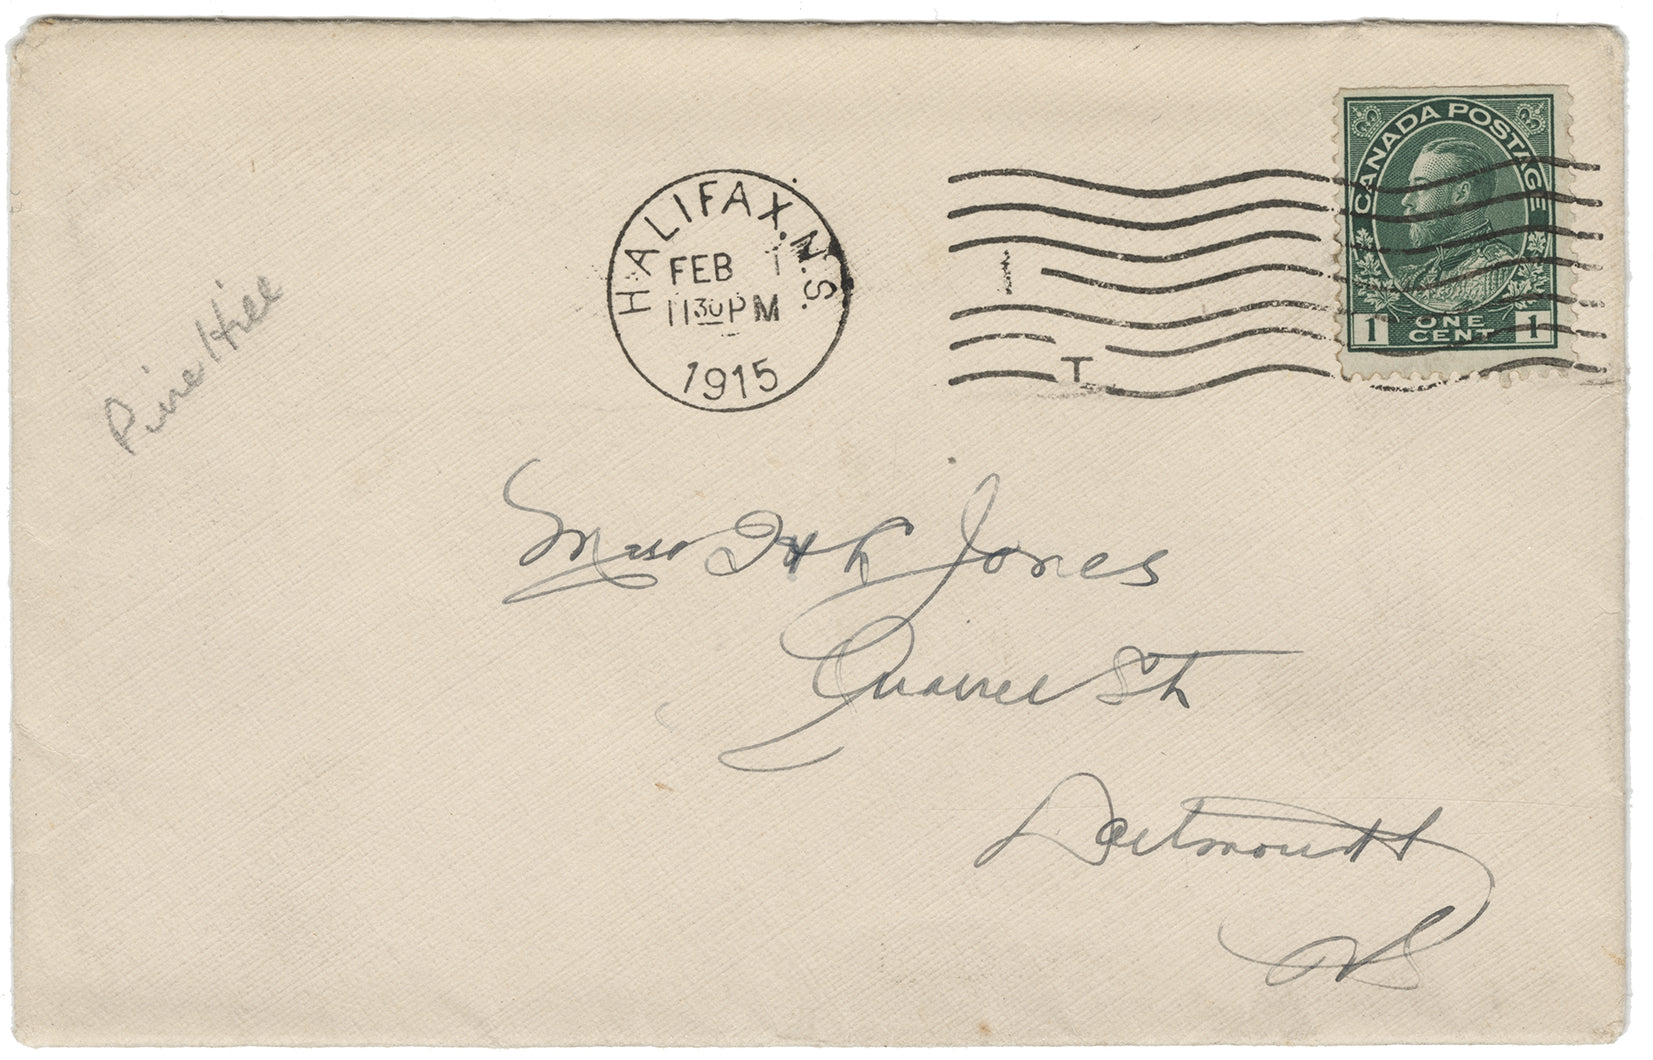 CANADA POSTAGE
1 ONE CENT 1
HALIFAX. N.S.
FEB 1
1130PM
1915
T
Pine Hill
Miss Jones
St
Dartmouth
NS